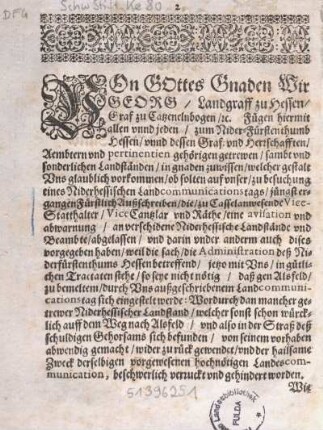 Schw Stift. Ke 80
2
DFG
VOn GOttes Gnaden Wir
GEORG / Landgraff zu Hessen /
Graf zu Catzenelnbogen / ꝛc. Fügen hiermit
allen vnnd jeden / zum Nider-Fürstenthumb
Hessen / vnnd dessen Graf- vnd Herrschafften,
Aembtern vnd pertinentien gehörigen getrewen / sambt vnd
sonderlichen Landständen / in gnaden zuwissen / welcher gestalt
Vns glaublich vorkommen, ob solten auf vnser / zu besuchung
eines Niderhessischen Landcommunicationstags / jüngst er-
gangen Fürstlich Außschreiben / die / zu Cassel anwesende Vice-
Statthalter / Vice Cantzlar vnd Räthe / eine avisation vnd
abwarnung / an verschidene Niderhessische Landstände vnd
Beambte / abgelassen / vnd darin vnder anderm auch dises
vorgegeben haben / weil die sach / die Administration deß Ni-
derfürstenthums Hessen betreffend / jetzo mit Vns / in gütli-
chen Tractaten stehe / so seye nit nötig / daß gen Alsfeld /
zu bemeltem / durch Vns außgeschriebnem Landcommuni-
cationstag sich eingestelt werde: Wordurch dan mancher ge-
trewer Niderhessischer Landstand / welcher sonst schon würck-
lich auff dem Weg nach Alsfeld / vnd also in der Straß deß
schuldigen Gehorsams sich befunden / von seinem vorhaben
abwendig gemacht / wider zu rück gewendet / vnd der hailsame
Zweck derselbigen vorgewesenen hochnötigen Landescom-
munication, beschwerlich verruckt vnd gehindert worden.
Wir
51396251
Landesbibliothek
FULDA